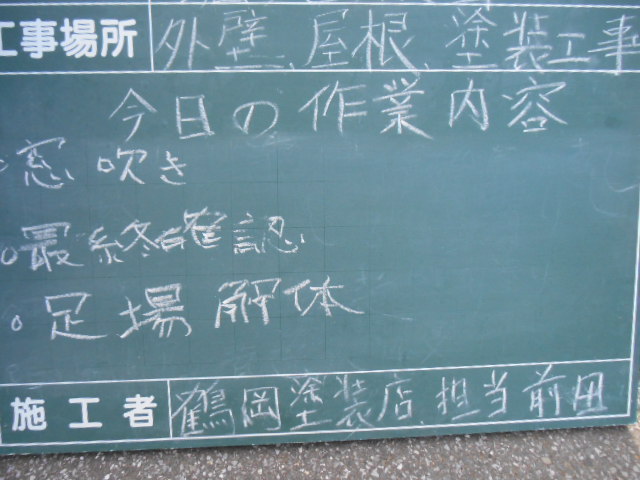 工事場所 外壁、屋根、塗装工事
今日の作業内容
○窓吹き
○最終確認
○足場解体
施工者 鶴岡塗装店、担当前田